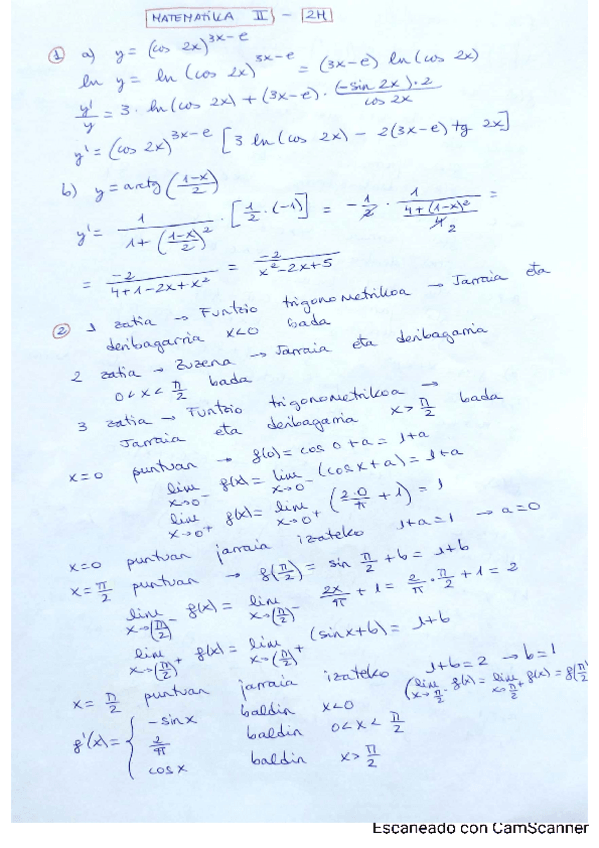 MATEMATIKA II - 2H
① a) y = (cos 2x)^{3x-e}
ln y = ln (cos 2x)^{3x-e} = (3x-e) ln(cos 2x)
y'/y = 3 · ln(cos 2x) + (3x-e) · (-sin 2x)·2 / cos 2x
y' = (cos 2x)^{3x-e} [3 ln(cos 2x) - 2(3x-e) tg 2x]
b) y = arctg ((1-x)/2)
y' = 1 / (1 + ((1-x)/2)²) · [1/2 · (-1)] = -1/2 · 1 / ((4+(1-x)²)/4) =
= -2 / (4+1-2x+x²) = -2 / (x²-2x+5)
② 1 zatia → Funtzio trigonometrikoa → Jarraia eta
deribagarria x<0 bada
2 zatia → Zuzena → Jarraia eta deribagarria
0<x<π/2 bada
3 zatia → Funtzio trigonometrikoa →
Jarraia eta deribagarria x>π/2 bada
x=0 puntuan → f(0) = cos 0+a = 1+a
lim x→0⁻ f(x) = lim x→0⁻ (cosx+a) = 1+a
lim x→0⁺ f(x) = lim x→0⁺ (2·0/π + 1) = 1
x=0 puntuan jarraia izateko 1+a=1 → a=0
x=π/2 puntuan → f(π/2) = sin π/2 + b = 1+b
lim x→(π/2)⁻ f(x) = lim x→(π/2)⁻ 2x/π + 1 = 2/π · π/2 + 1 = 2
lim x→(π/2)⁺ f(x) = lim x→(π/2)⁺ (sinx+b) = 1+b
x= π/2 puntuan jarraia izateko 1+b=2 → b=1
(lim x→π/2⁻ f(x) = lim x→π/2⁺ f(x) = f(π/2
f'(x) = { -sinx baldin x<0
2/π baldin 0<x<π/2
cosx baldin x>π/2
Escaneado con CamScanner